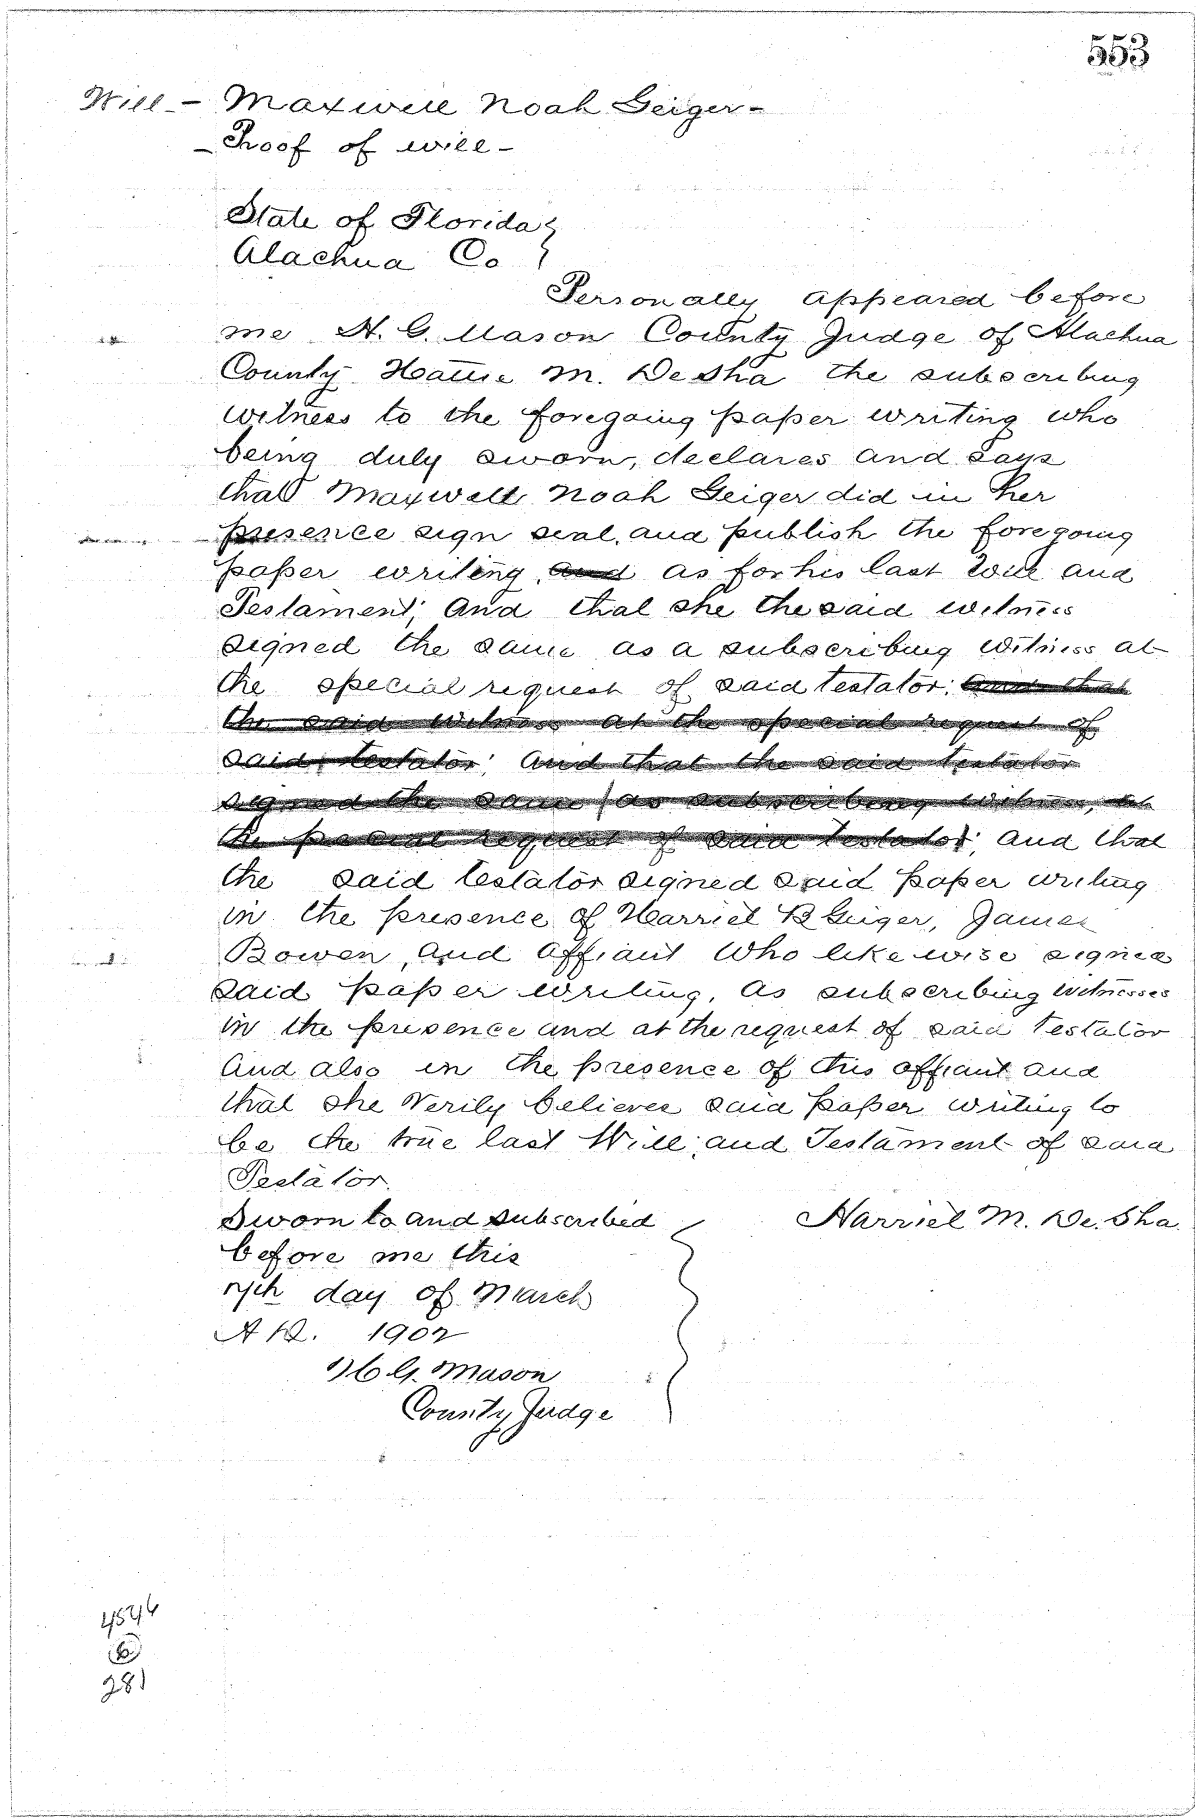 553
Will - Maxwell Noah Geiger -
- Proof of will -
State of Florida }
Alachua Co }
Personally appeared before
me H. G. Mason County Judge of Alachua
County Hattie M. DeSha the subscribing
witness to the foregoing paper writing who
being duly sworn, declares and says
that Maxwell Noah Geiger did in her
presence sign seal and publish the foregoing
paper writing, and as for his last Will and
Testament; and that she the said witness
signed the same as a subscribing witness at
the special request of said testator; and that
the said witness at the special request of
said testator; and that the said testator
signed the same (as subscribing witness, at
the special request of said testator); and that
the said testator signed said paper writing
in the presence of Harriet B Geiger, James
Bowen, and affiant who like wise signed
said paper writing, as subscribing witnesses
in the presence and at the request of said testator
and also in the presence of this affiant and
that she verily believes said paper writing to
be the true last Will and Testament of said
Testator.
Sworn to and subscribed
before me this
day of March
A D. 1902
H. G. Mason
County Judge
Harriet M. De. Sha
4546
6
281